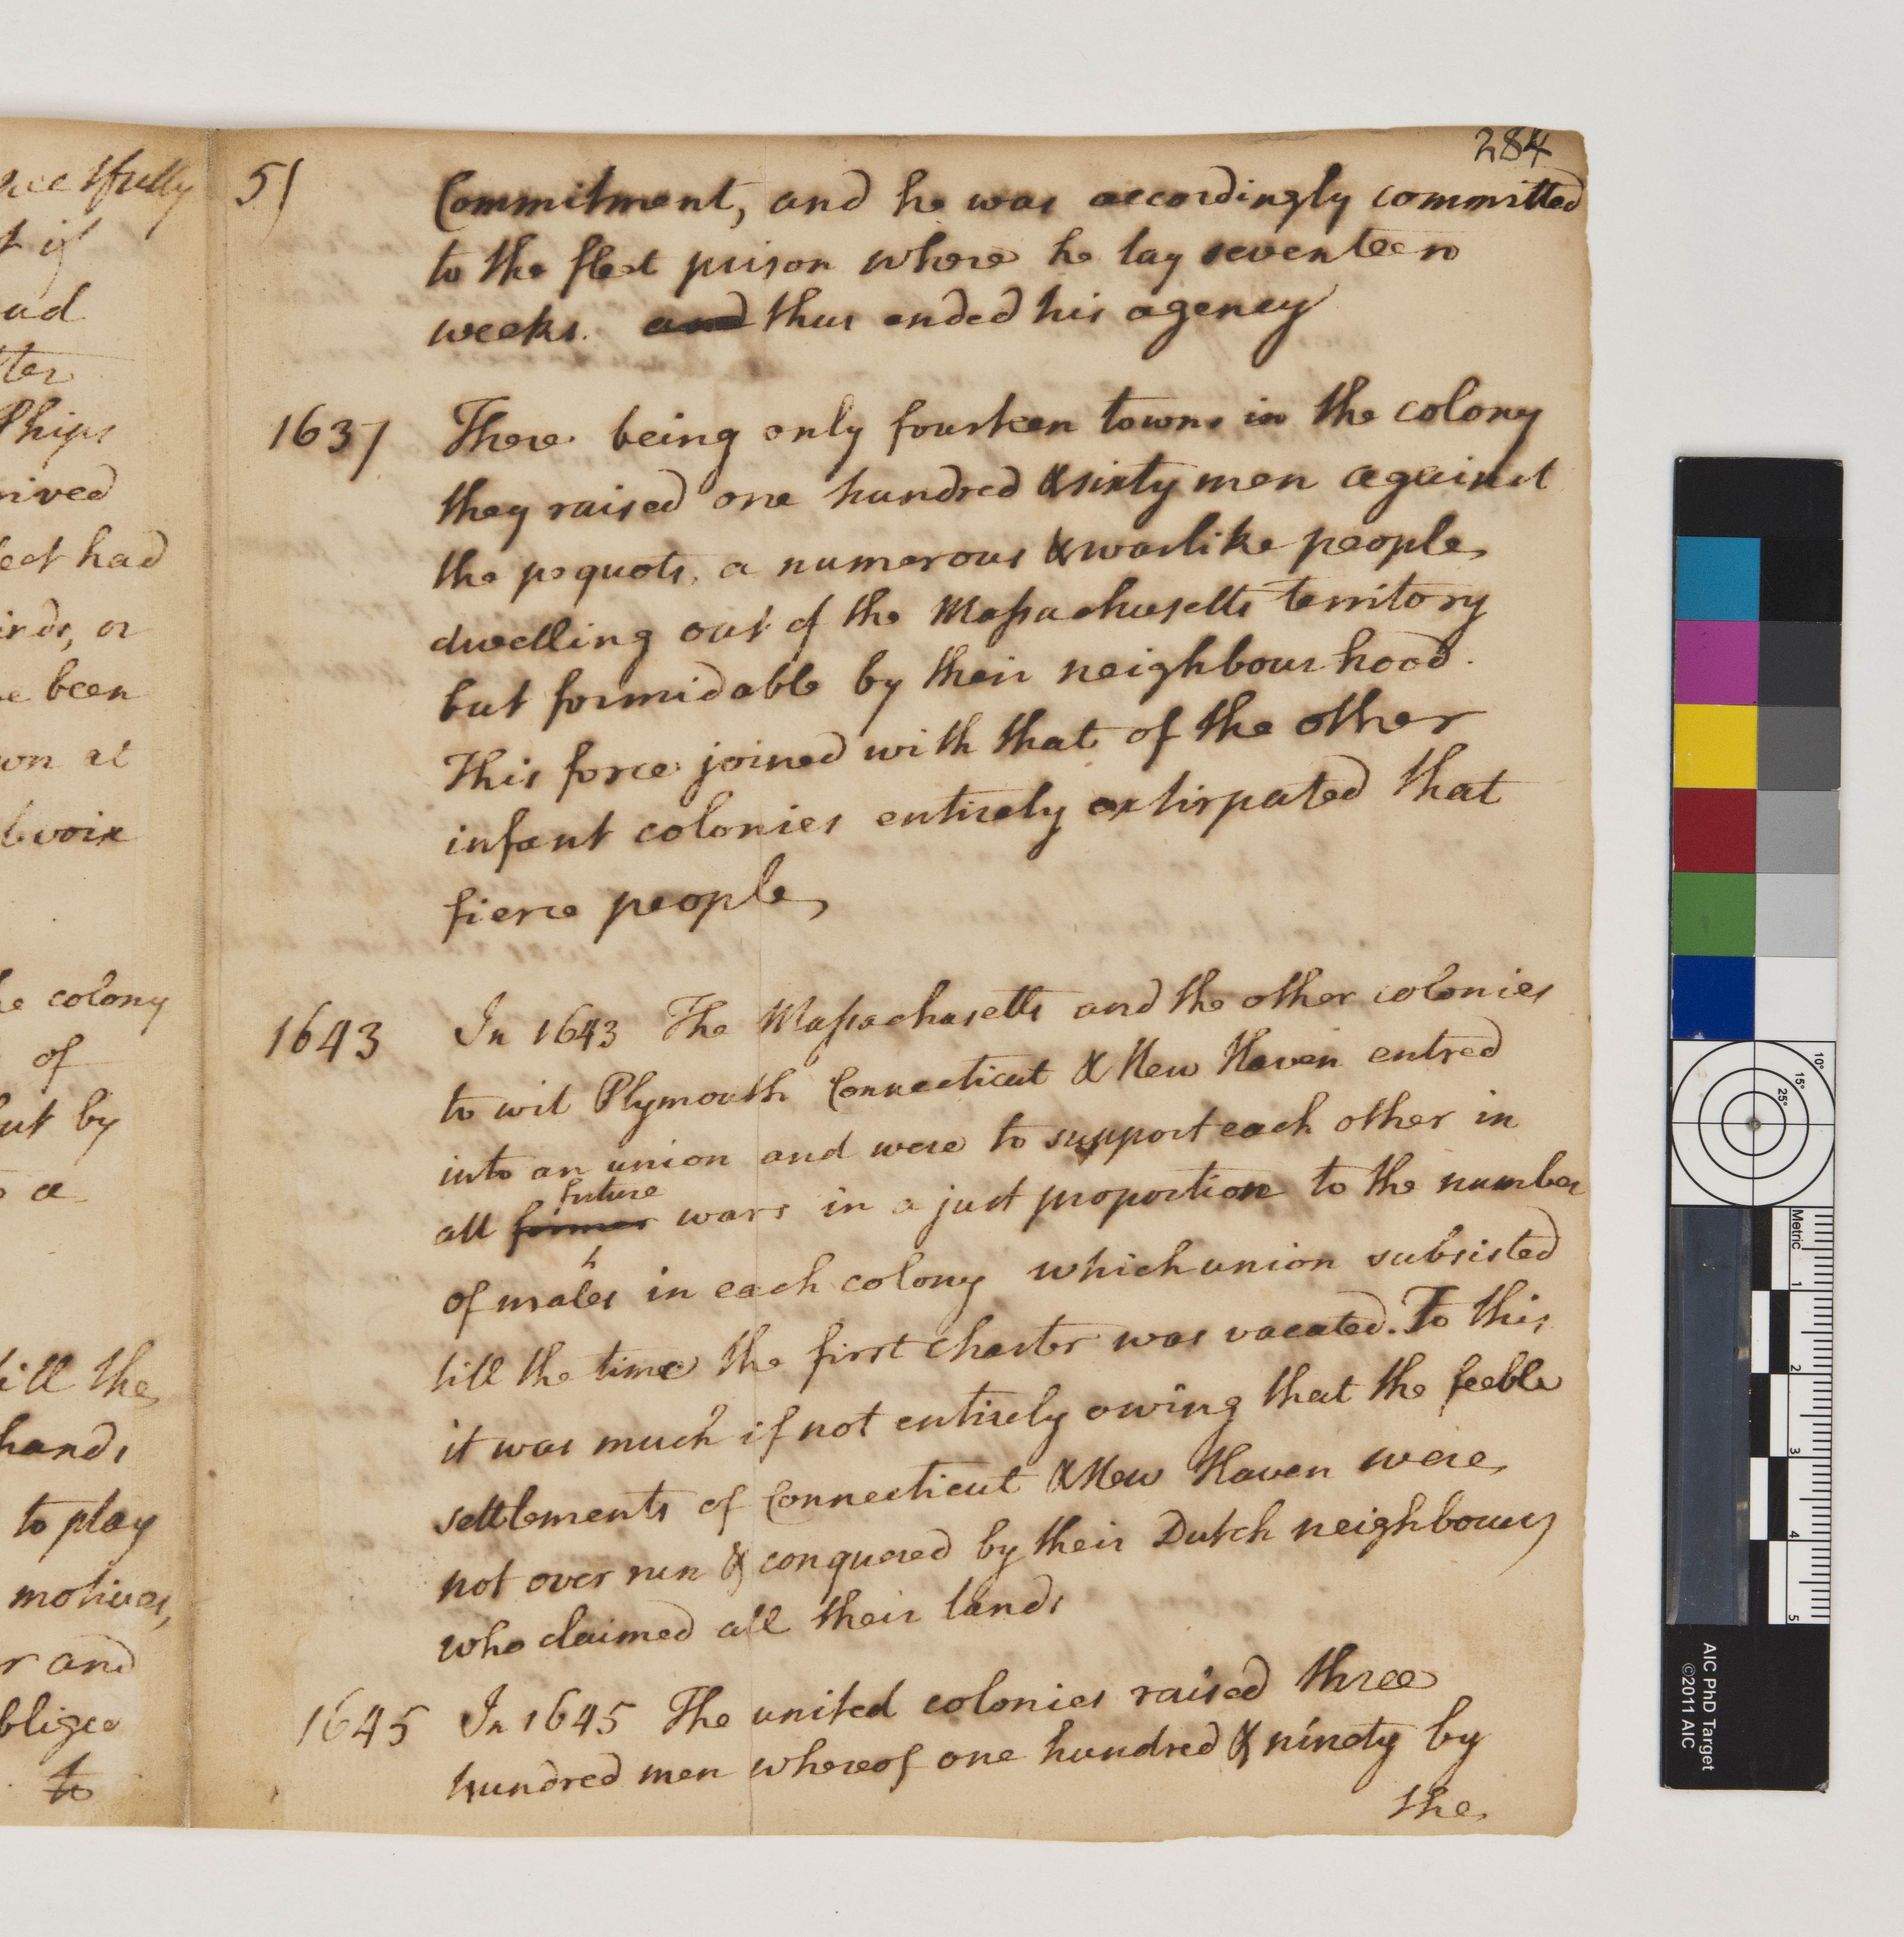 284
5)
Commitment, and he was accordingly committed
to the fleet prison where he lay seventeen
weeks. and thus ended his agency
1637
There being only fourteen towns in the colony
they raised one hundred & sixty men against
the pequots, a numerous & warlike people
dwelling out of the Massachusetts territory
but formidable by their neighbourhood.
This force joined with that of the other
infant colonies entirely extirpated that
fierce people
1643
In 1643 The Massachusetts and the other colonies
to wit Plymouth Connecticut & New Haven entred
into an union and were to support each other in
future
all former wars in a just proportion to the number
of males in each colony which union subsisted
till the time the first charter was vacated. To this
it was much if not entirely owing that the feeble
settlements of Connecticut & New Haven were
not over run & conquered by their Dutch neighbours
who claimed all their lands
1645
In 1645 The united colonies raised three
hundred men whereof one hundred & ninety by
the
if
ter
Phips
had
or
been
at
colony
of
by
a
till the
hands
to play
motives,
and
to
10°
15°
25°
Metric
1
2
3
4
5
AIC PhD Target
©2011 AIC